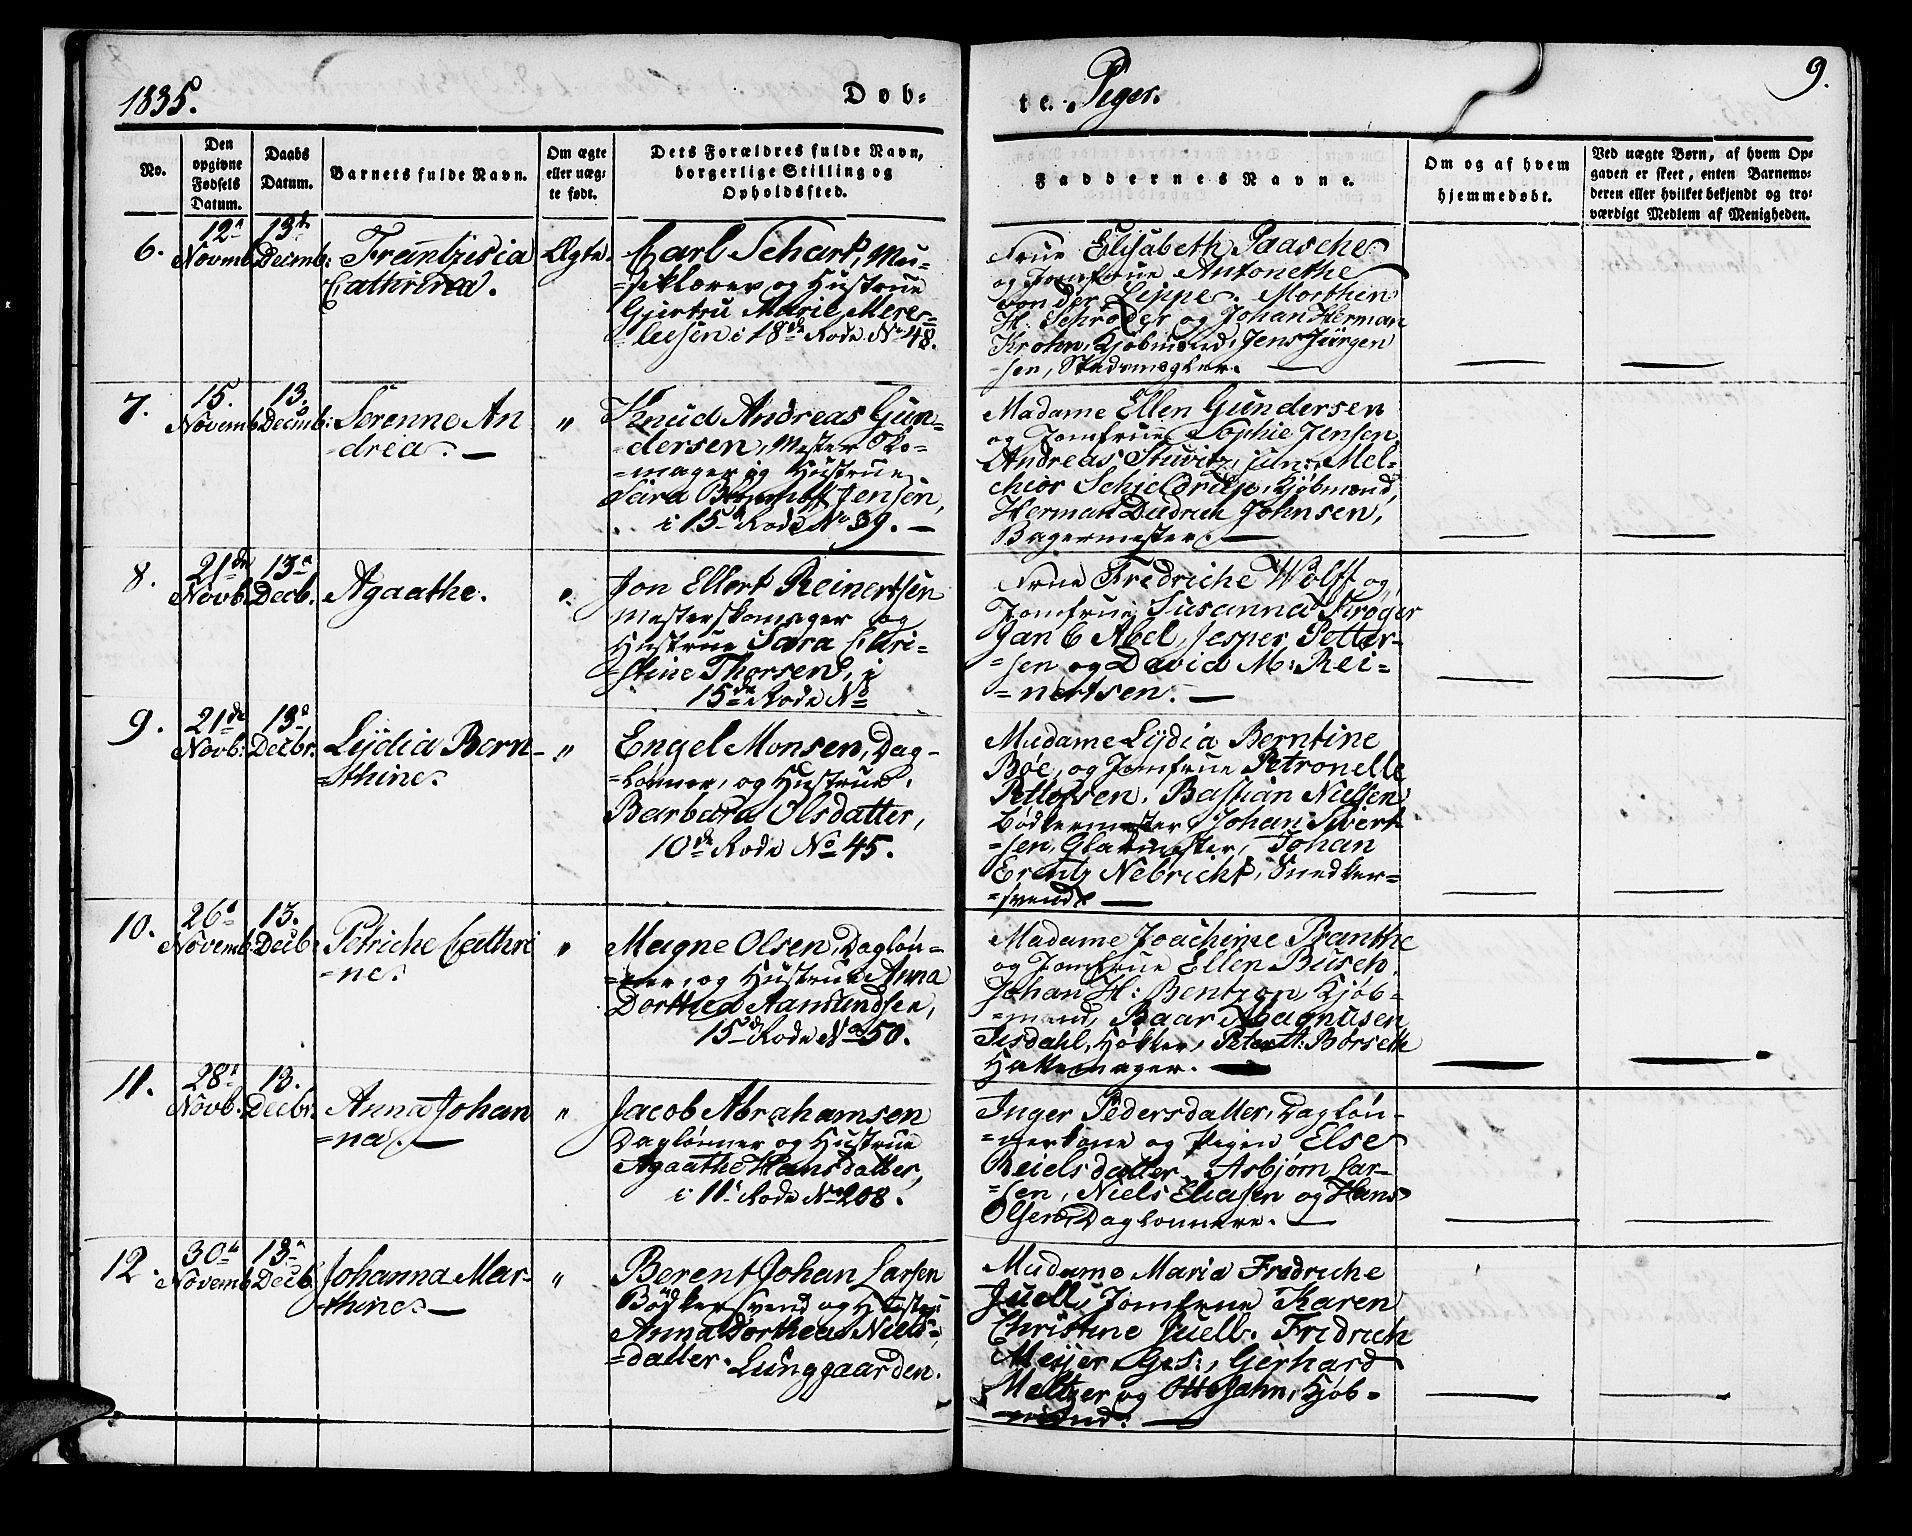 1835.
Dob-
te Piger.
9.
No.
Den opgivne Fødsels Datum.
Daabs Datum.
Barnets fulde Navn.
Om ægte eller uægte født.
Dets Forældres fulde Navn, borgerlige Stilling og Opholdssted.
Faddernes Navne.
Om og af hvem hjemmedøbt.
Ved uægte Børn, af hvem Opgaven er skeet, enten Barnemoderen eller hvilket bekjendt og troværdigt Medlem af Menigheden.
6.
12
Novmb
13
Decmb:
Frantzisia
Cathrina.
Ægte.
Carl Schark, Mu-
=siklærer og Hustrue
Gjertru Marie
=leesen i 18de Rode No 48.
Frue Elisabeth Paasche
og Jomfrue Antonethe
von der Lippe. Morthin
H. Schrøder og Johan Herman
Krohn, Kjøbmænd, Jens Jürgen
=sen, Stadsmægler.
7.
15.
Novemb
13.
Decmb:
Serenne An
=drea. —
"
Knud Andreas Gun-
=dersen, Mester Sko-
=mager og Hustrue
Sara Jensen,
i 15 Rode No 39. —
Madame Ellen Gundersen
og Jomfrue Sophie Jensen,
Andreas Stuvitz, jun: Mel-
chior Schjeldrup, Kjøbmænd,
Herman Diedrich Johnsen,
Bagermester. —
8.
21de
Novb.
13
Decb.
Agaathe.
"
Jon Ellert Reinertsen
Mesterskomager og
Hustrue Sara Chri-
=stine Thorsen, i
15de Rode No
Frue Fredriche Wolff og
Jomfrue Susanna Krøger
Jan C Abel, Jesper Petter-
=sen og David M: Rei-
=nertsen. —
9.
21de
Novb:
13
Decbr.
Lydia Bern-
=thine.
"
Engel Monsen, Dag-
=lønner, og Hustrue,
Barbara Olsdatter,
10de Rode No 45.
Madame Lydia Berntine
Bøe, og Jomfrue Petronelle
Pettersen. Bastian Nielsen
Bødkermester, Johan Sivert
=sen, Glarmester, Johan
Erentz Nebricht, Snedker-
=svend. —
10.
26
Novemb
13.
Decb.
Petriche Cathri
=ne.
"
Magne Olsen, Dagløn-
=ner, og Hustrue Anna
Dorthea Aamundsen,
15 Rode No 50.
Madame Joachime Pranthe
og Jomfrue Ellen Busch.
Johan H: Bentzon, Kjøb-
=mand, Baar Magnusen
Iisdahl, Høkker, Peter A: Børseth
Hattemager. —
11.
28
Novb.
13.
Decbr.
Anna Johan
=na. —
"
Jacob Abrahamsen
Daglønner og Hustrue
Agaathe Hansdatter,
i 11 Rode No 208.
Inger Pedersdatter, Dagløn-
=nerkone og Pigen Else
Reielsdatter. Asbjørn Lar-
=sen, Niels Eliasen og Hans
Olsen, Daglønnere. —
12.
30
Novemb
13
Decb.
Johanna Mar-
=thine. —
"
Berent Johan Larsen
Bødkersvend og Hustru
Anna Dorthea Niels-
=datter. Lunggaarden.
Madame Maria Fredriche
Juell, Jomfrue Karen
Christine Juell. Fridrich
Meyer, Ges:, Gerhard
Meltzer og Otto Jahn, Kjøb-
=mænd. —